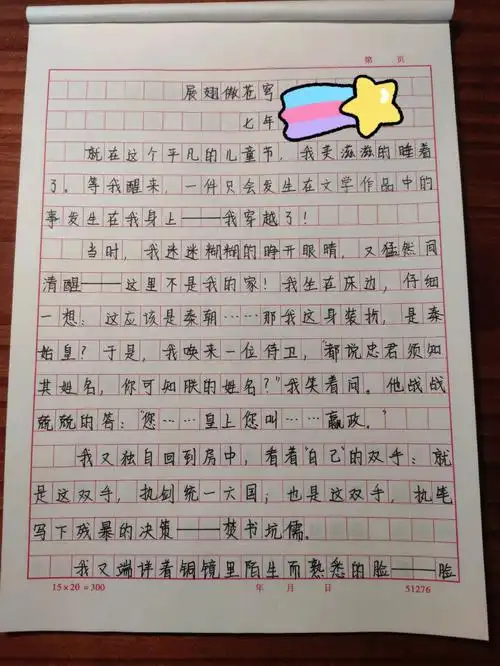 第 页
展翅傲苍穹
七年
就在这个平凡的儿童节，我美滋滋的睡着
了。等我醒来，一件只会发生在文学作品中的
事发生在我身上——我穿越了！
当时，我迷迷糊糊的睁开眼睛，又猛然间
清醒——这里不是我的家！我坐在床边，仔细
一想：这应该是秦朝……那我这身装扮，是秦
始皇？于是，我唤来一位侍卫，“都说忠君须知
其姓名，你可知朕的姓名？”我笑着问。他战战
兢兢的答：“您……皇上您叫……嬴政。”
我又独自回到房中，看着“自己”的双手：就
是这双手，执剑统一六国；也是这双手，执笔
写下残暴的决策——焚书坑儒。
我又端详着铜镜里陌生而熟悉的脸——脸
15×20=300 年 月 日 51276